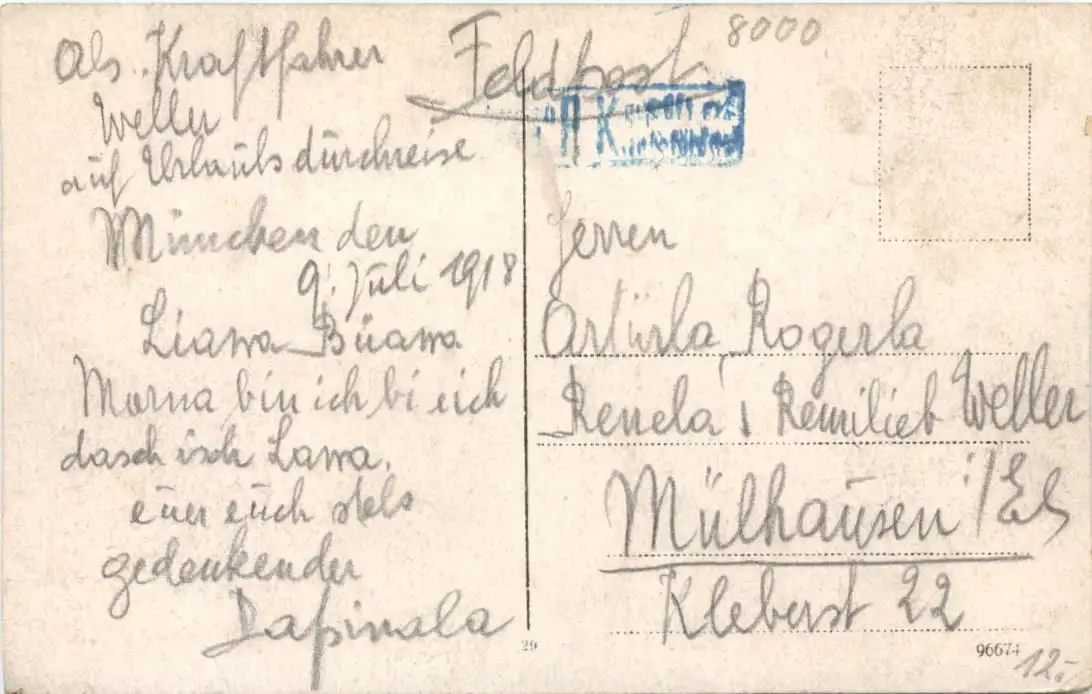 Als Kraftfahrer
Weller
auf Urlaubsdurchreise
München den
9. Juli 1918
Liawa Büawa
Morna bin ich bi eich
dasch isch Lawa.
eüer eüch stets
gedenkender
Feldpost
8000
Herren
Artürla, Rogerla
Renela & Remilieb Weller
Mülhausen i/Els
Kleberst 22
29
96674
12.-